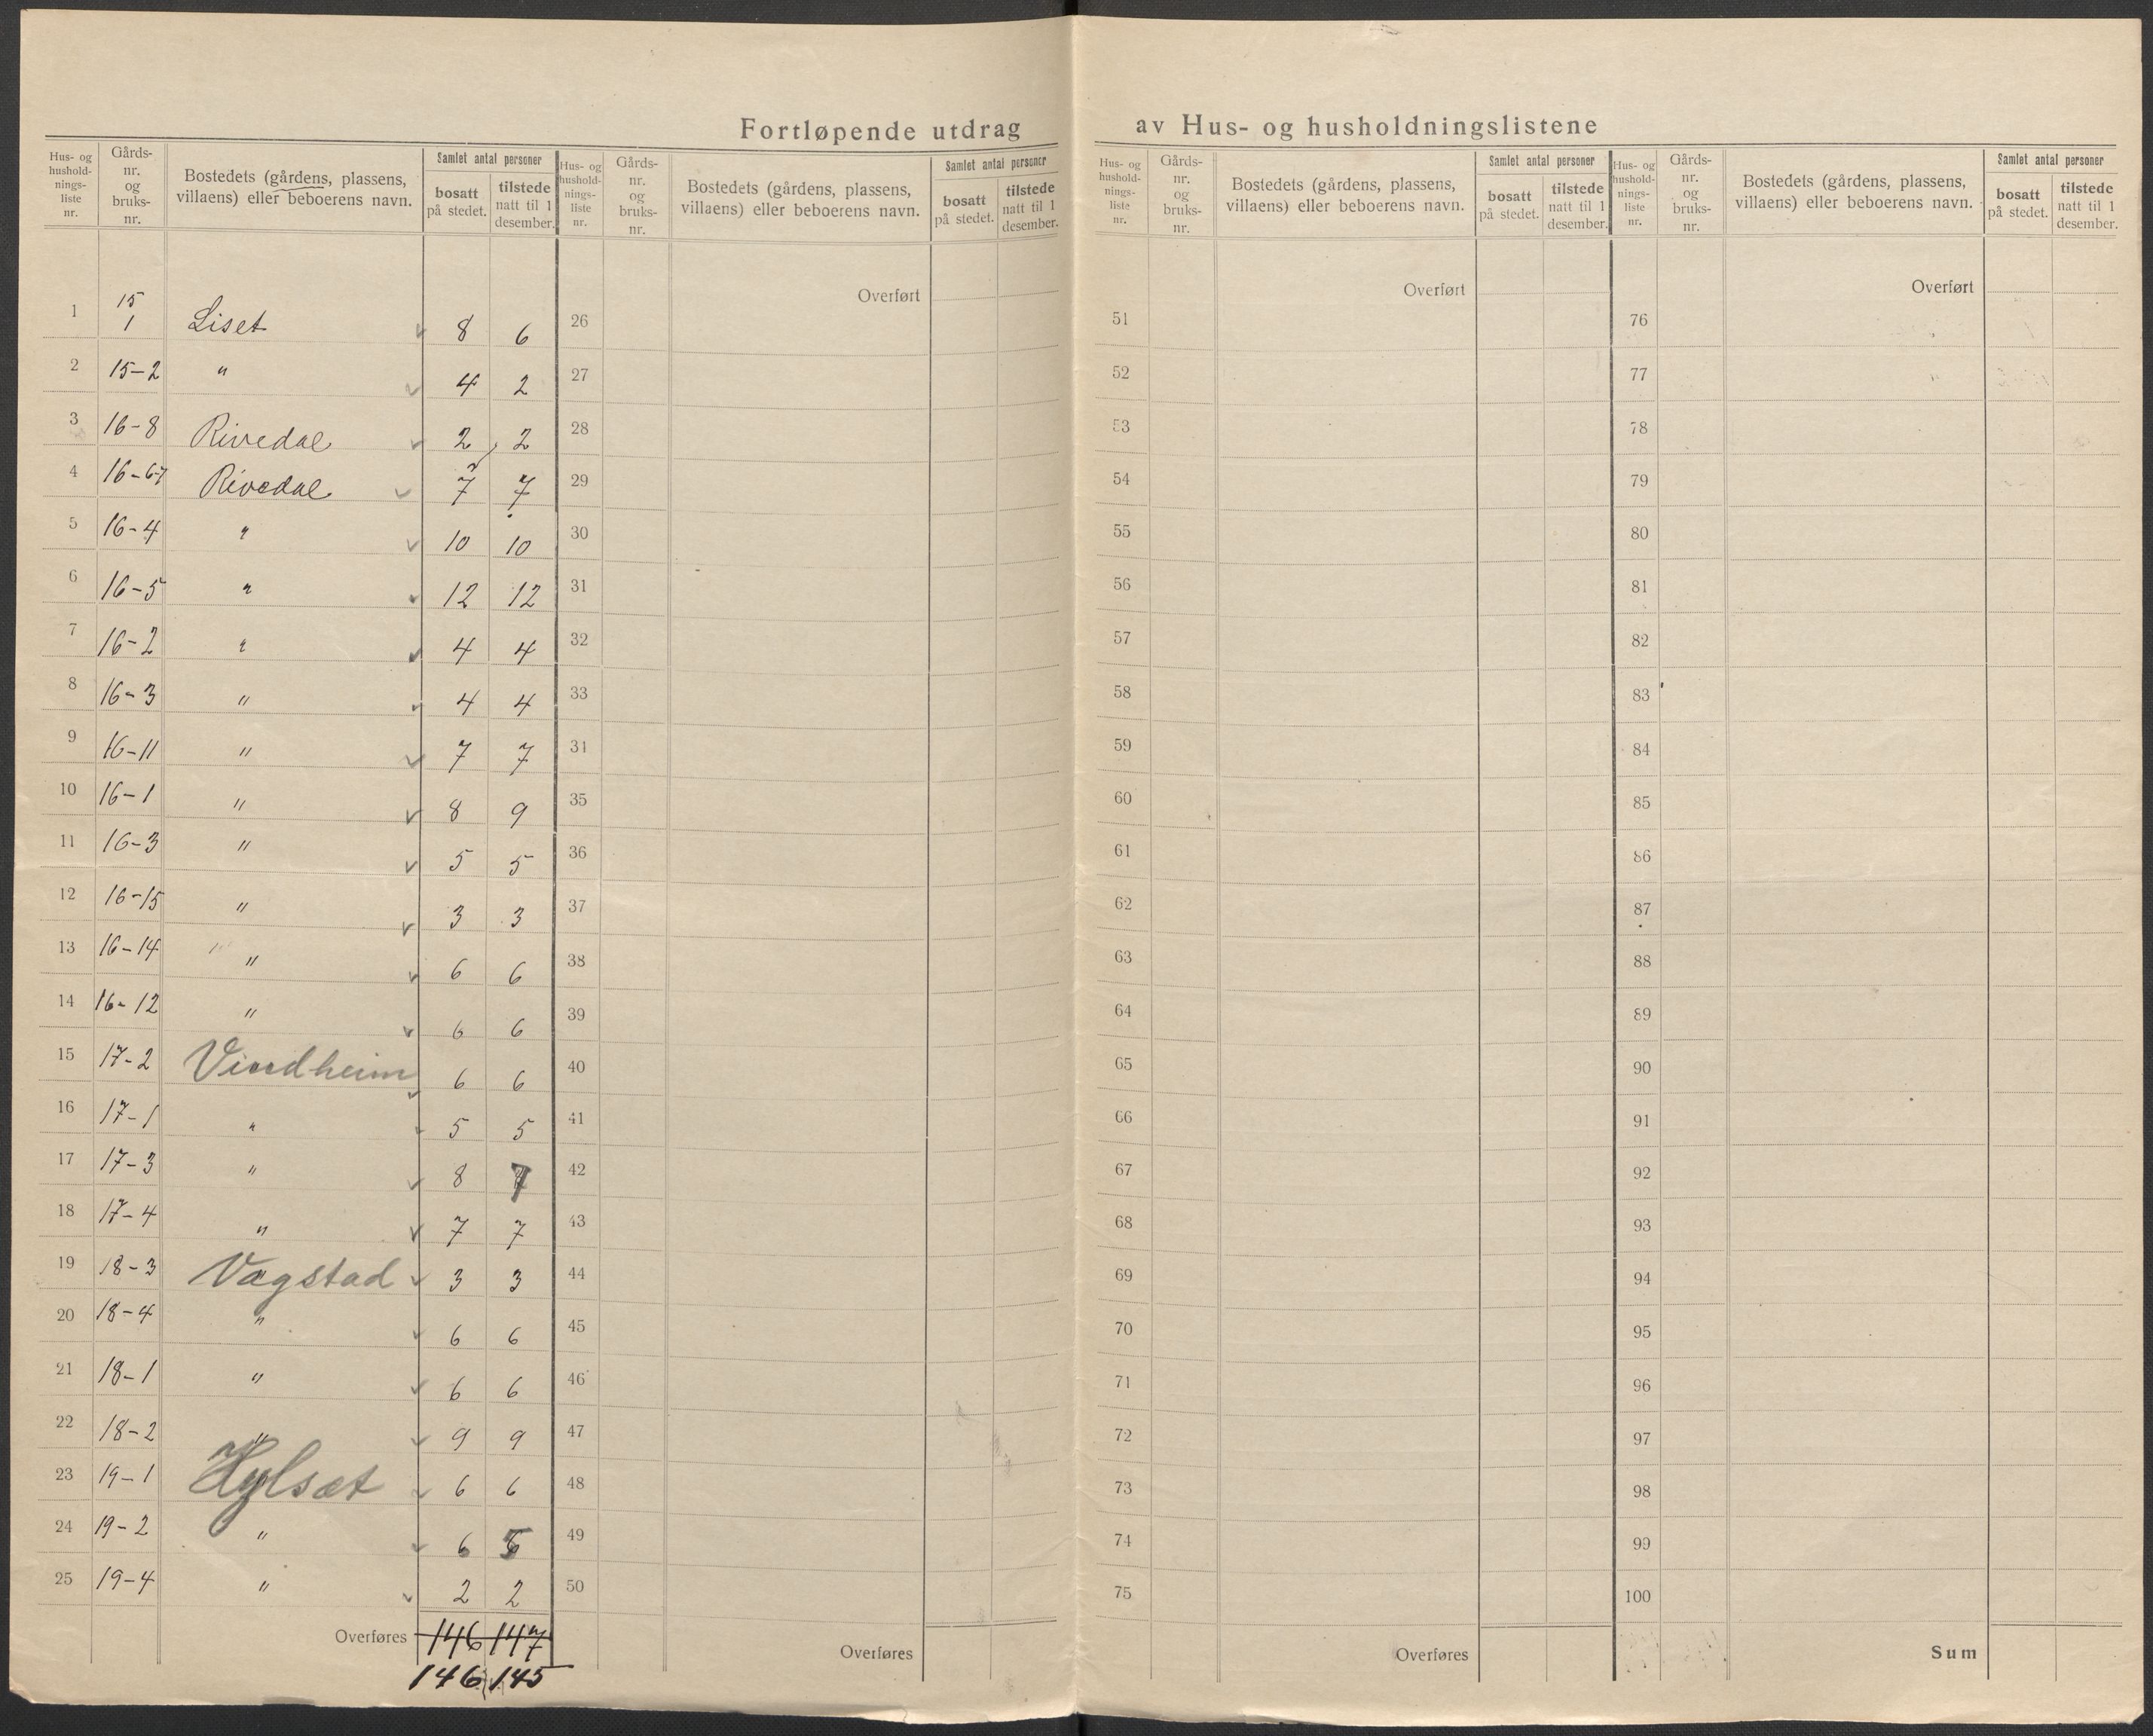 Fortløpende utdrag av Hus- og husholdningslistene
Hus- og hushold- nings- liste nr.
Gårds- nr. og bruks- nr.
Bostedets (gårdens, plassens, villaens) eller beboerens navn.
Samlet antal personer
bosatt på stedet.
tilstede natt til 1 desember.
1 15 1 Liset 8 6
2 15-2 " 4 2
3 16-8 Rivedal 2 2
4 16-67 Rivedal 7 7
5 16-4 " 10 10
6 16-5 " 12 12
7 16-2 " 4 4
8 16-3 " 4 4
9 16-11 " 7 7
10 16-1 " 8 9
11 16-3 " 5 5
12 16-15 " 3 3
13 16-14 " 6 6
14 16-12 " 6 6
15 17-2 Vindheim 6 6
16 17-1 " 5 5
17 17-3 " 8 7
18 17-4 " 7 7
19 18-3 Vagstad 3 3
20 18-4 " 6 6
21 18-1 " 6 6
22 18-2 " 9 9
23 19-1 Hylsæt 6 6
24 19-2 " 6 5
25 19-4 " 2 2
Overføres 146 147
146 145
Hus- og hushold- nings- liste nr.
Gårds- nr. og bruks- nr.
Bostedets (gårdens, plassens, villaens) eller beboerens navn.
Samlet antal personer
bosatt på stedet.
tilstede natt til 1 desember.
Overført
26
27
28
29
30
31
32
33
34
35
36
37
38
39
40
41
42
43
44
45
46
47
48
49
50
Overføres
Hus- og hushold- nings- liste nr.
Gårds- nr. og bruks- nr.
Bostedets (gårdens, plassens, villaens) eller beboerens navn.
Samlet antal personer
bosatt på stedet.
tilstede natt til 1 desember.
Overført
51
52
53
54
55
56
57
58
59
60
61
62
63
64
65
66
67
68
69
70
71
72
73
74
75
Overføres
Hus- og hushold- nings- liste nr.
Gårds- nr. og bruks- nr.
Bostedets (gårdens, plassens, villaens) eller beboerens navn.
Samlet antal personer
bosatt på stedet.
tilstede natt til 1 desember.
Overført
76
77
78
79
80
81
82
83
84
85
86
87
88
89
90
91
92
93
94
95
96
97
98
99
100
Sum